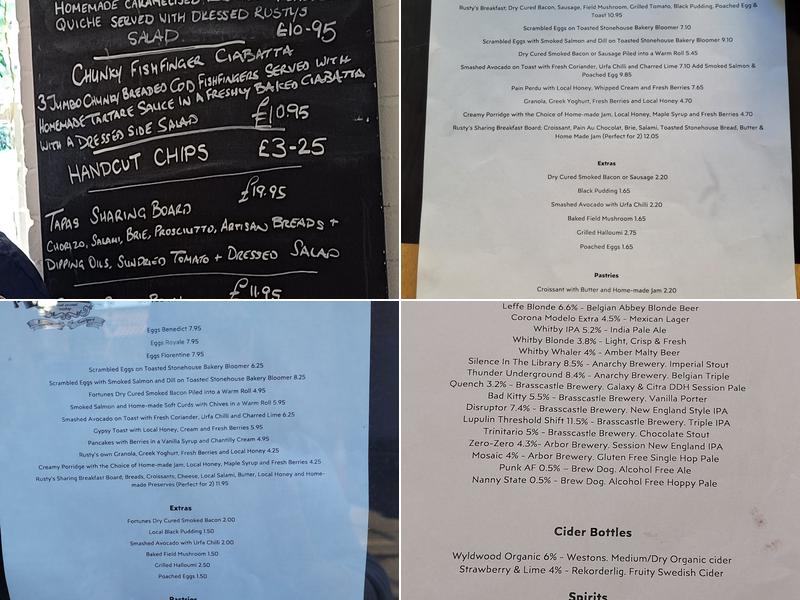 HOMEMADE CARAMELISED
QUICHE SERVED WITH DRESSED RUSTY'S
SALAD £10-95
CHUNKY FISHFINGER CIABATTA
3 JUMBO CHUNKY BREADED COD FISHFINGERS SERVED WITH
HOMEMADE TARTARE SAUCE IN A FRESHLY BAKED CIABATTA
WITH A DRESSED SIDE SALAD £10.95
HANDCUT CHIPS £3-25
£19.95
TAPAS SHARING BOARD
CHORIZO, SALAMI, BRIE, PROSCIUTTO, ARTISAN BREADS +
DIPPING OILS, SUNDRIED TOMATO + DRESSED SALAD
£11.95
Rusty's Breakfast; Dry Cured Bacon, Sausage, Field Mushroom, Grilled Tomato, Black Pudding, Poached Egg &
Toast 10.95
Scrambled Eggs on Toasted Stonehouse Bakery Bloomer 7.10
Scrambled Eggs with Smoked Salmon and Dill on Toasted Stonehouse Bloomer 9.10
Dry Cured Smoked Bacon or Sausage Piled into a Warm Roll 5.45
Smashed Avocado on Toast with Fresh Coriander, Urfa Chilli and Charred Lime 7.10 Add Smoked Salmon &
Poached Egg 9.85
Pain Perdu with Local Honey, Whipped Cream and Fresh Berries 7.65
Granola, Greek Yoghurt, Fresh Berries and Local Honey 4.70
Creamy Porridge with the Choice of Home-made Jam, Local Honey, Maple Syrup and Fresh Berries 4.70
Rusty's Sharing Breakfast Board; Croissant, Pain Au Chocolat, Brie, Salami, Toasted Stonehouse Bread, Butter &
Home Made Jam (Perfect for 2) 12.05
Extras
Dry Cured Smoked Bacon or Sausage 2.20
Black Pudding 1.65
Smashed Avocado with Urfa Chilli 2.20
Baked Field Mushroom 1.65
Grilled Halloumi 2.75
Poached Eggs 1.65
Pastries
Croissant with Butter and Home-made Jam 2.20
Eggs Benedict 7.95
Eggs Royale 7.95
Eggs Florentine 7.95
Scrambled Eggs on Toasted Stonehouse Bakery Bloomer 6.25
Scrambled Eggs with Smoked Salmon and Dill on Toasted Stonehouse Bakery Bloomer 8.25
Fortunes Dry Cured Smoked Bacon Piled into a Warm Roll 4.95
Smoked Salmon and Home-made Soft Curds with Chives in a Warm Roll 5.95
Smashed Avocado on Toast with Fresh Coriander, Urfa Chilli and Charred Lime 6.25
Gypsy Toast with Local Honey, Cream and Fresh Berries 5.95
Pancakes with Berries in a Vanilla Syrup and Chantilly Cream 4.95
Rusty's own Granola, Greek Yoghurt, Fresh Berries and Local Honey 4.25
Creamy Porridge with the Choice of Home-made Jam, Local Honey, Maple Syrup and Fresh Berries 4.25
Rusty's Sharing Breakfast Board; Breads, Croissants, Cheese, Local Salami, Butter, Local Honey and Home-
made Preserves (Perfect for 2) 11.95
Extras
Fortunes Dry Cured Smoked Bacon 2.00
Local Black Pudding 1.50
Smashed Avocado with Urfa Chilli 2.00
Baked Field Mushroom 1.50
Grilled Halloumi 2.50
Poached Eggs 1.50
Pastries
Leffe Blonde 6.6% - Belgian Abbey Blonde Beer
Corona Modelo Extra 4.5% - Mexican Lager
Whitby IPA 5.2% - India Pale Ale
Whitby Blonde 3.8% - Light, Crisp & Fresh
Whitby Whaler 4% - Amber Malty Beer
Silence In The Library 8.5% - Anarchy Brewery. Imperial Stout
Thunder Underground 8.4% - Anarchy Brewery. Belgian Triple
Quench 3.2% - Brasscastle Brewery. Galaxy & Citra DDH Session Pale
Bad Kitty 5.5% - Brasscastle Brewery. Vanilla Porter
Disruptor 7.4% - Brasscastle Brewery. New England Style IPA
Lupulin Threshold Shift 11.5% - Brasscastle Brewery. Triple IPA
Trinitario 5% - Brasscastle Brewery. Chocolate Stout
Zero-Zero 4.3%- Arbor Brewery. Session New England IPA
Mosaic 4% - Arbor Brewery. Gluten Free Single Hop Pale
Punk AF 0.5% – Brew Dog. Alcohol Free Ale
Nanny State 0.5% - Brew Dog. Alcohol Free Hoppy Pale
Cider Bottles
Wyldwood Organic 6% - Westons. Medium/Dry Organic cider
Strawberry & Lime 4% - Rekorderlig. Fruity Swedish Cider
Spirits